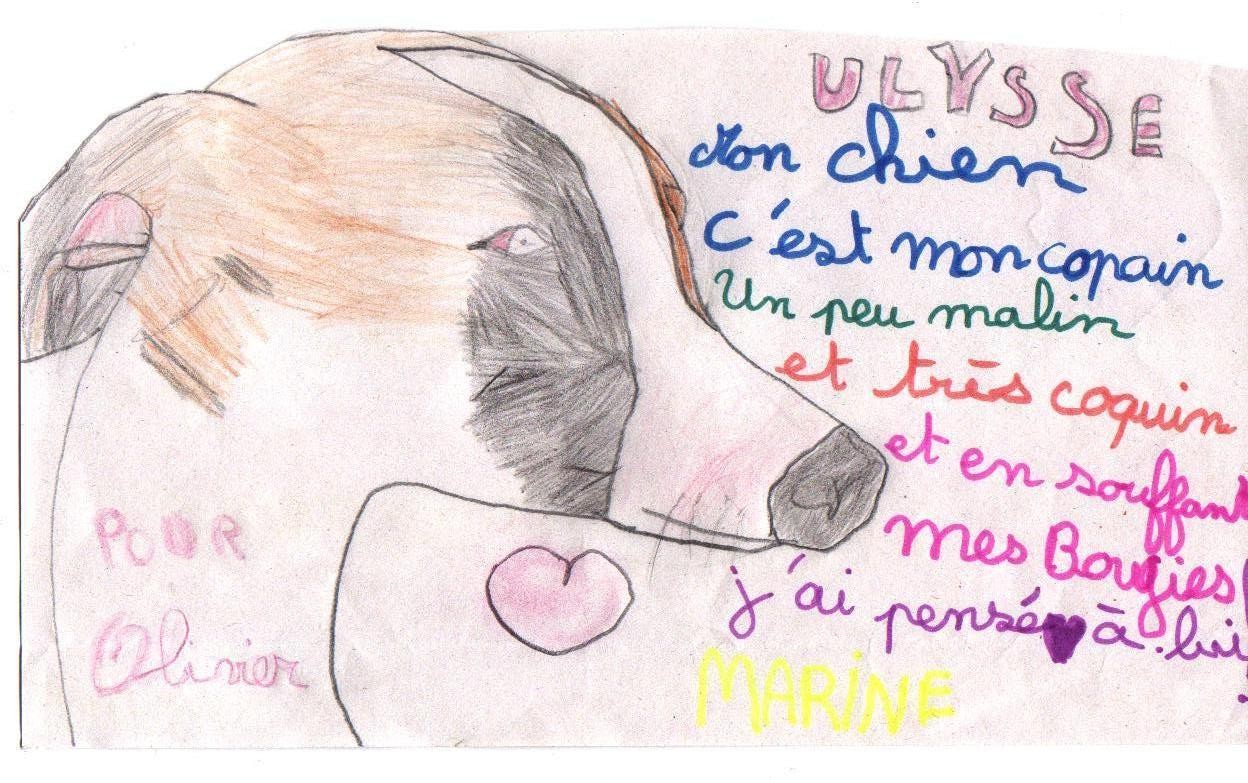 ULYSSE
Mon chien
C'est mon copain
Un peu malin
et très coquin
et en souffant
mes Bougies
j'ai pensé à lui
MARINE
POUR
Olivier